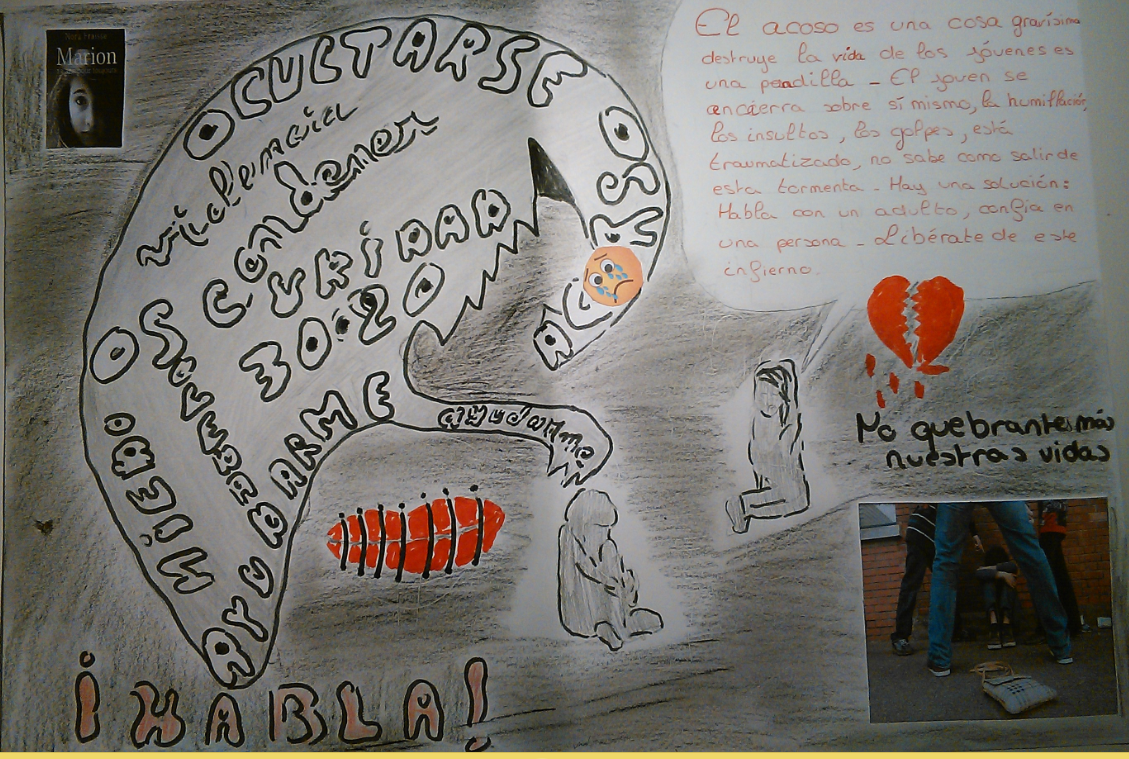 Marion
OCULTARSE
violencia
OSCURIDAD
3020
MIEDO
AYUDARME
ayudarme
El acoso es una cosa gravísima
destruye la vida de los jóvenes es
una pesadilla - El joven se
encierra sobre sí mismo, la humillación,
los insultos, los golpes, está
traumatizado, no sabe como salir de
esta tormenta - Hay una solución:
Habla con un adulto, confia en
una persona - Libérate de este
infierno.
No quebrantes más
nuestras vidas
¡HABLA!